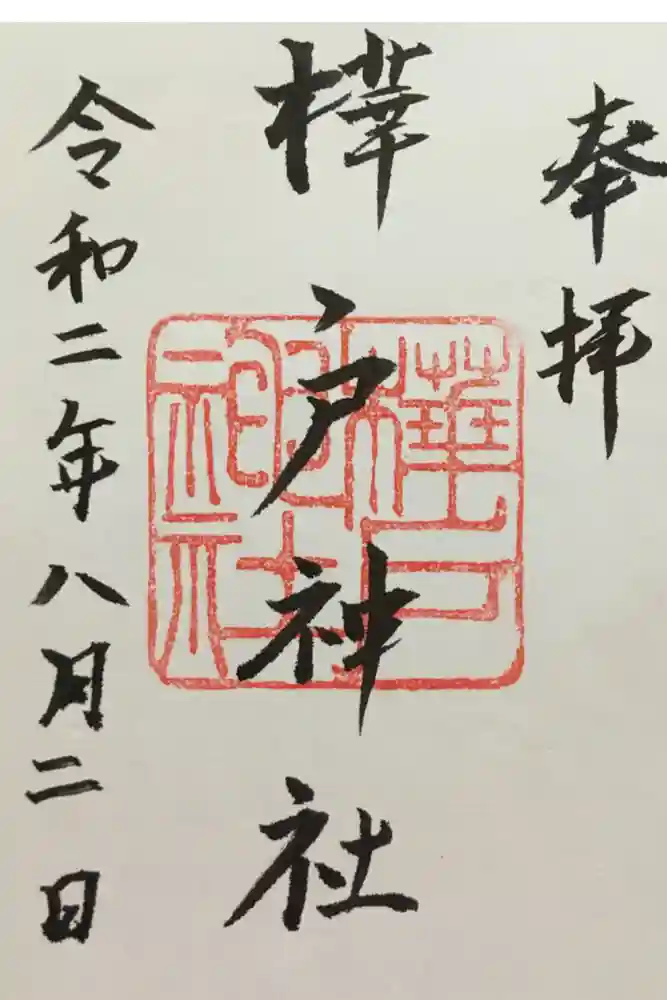 奉拝
樺戸神社
令和二年八月二日
樺戸神社